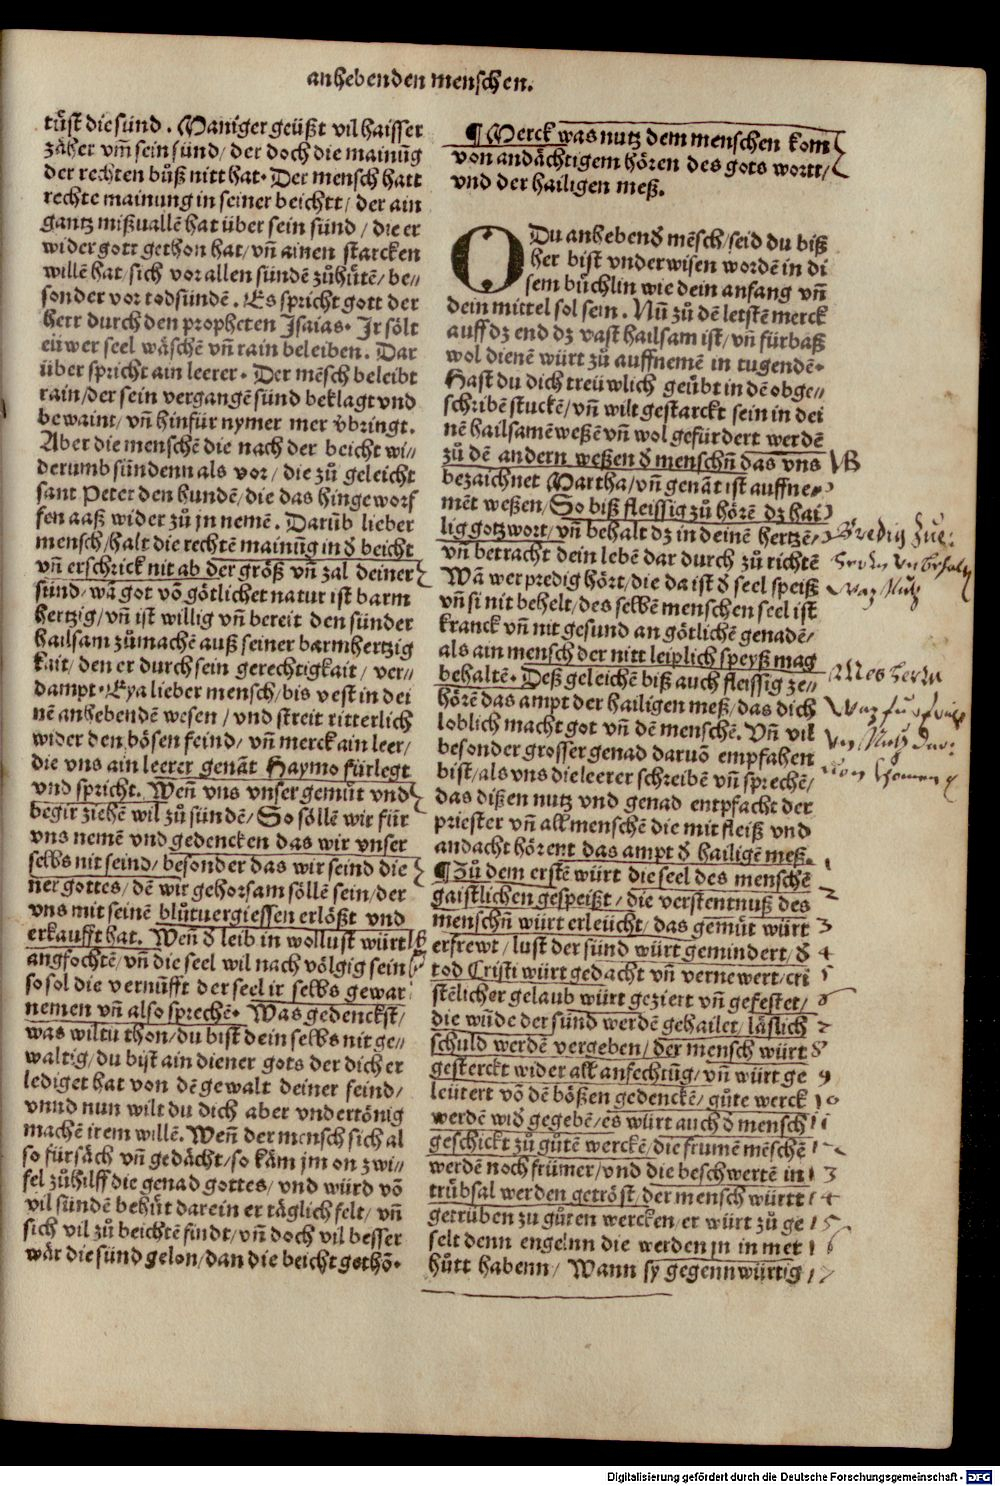 anhebenden menschen.
tůst die sünd. Maniger geüßt vil haisser
zäher vm̄ sein sünd/ der doch die mainūg
der rechten bůß nitt hat. Der mensch hatt
rechte mainung in seiner beichtt/ der ain
gantz mißuallē hat über sein sünd/ die er
wider gott gethon hat/ vn̄ ainen starcken
willē hat/ sich vor allen sündē zůhůtē/ be⸗
sonder vor todsündē. Es spricht gott der
herr durch den propheten Isaias. Ir sölt
eüwer seel wäschē vn̄ rain beleiben. Dar
über spricht ain leerer. Der mēsch beleibt
rain/ der sein vergangē sünd beklagt vnd
bewaint/ vn̄ hinfür nymer mer v̄bringt.
Aber die menschē die nach der beicht wi⸗
derumb sündenn als vor/ die zů geleicht
sant Peter den hundē/ die das hingeworf
fen aaß wider zů jn nemē. Darūb lieber
mensch/ halt die rechtē mainūg in d̄ beicht
vn̄ erschrick nit ab der größ vn̄ zal deiner
sünd/ wā got vō götlichet natur ist barm
hertzig/ vn̄ ist willig vn̄ bereit den sünder
hailsam zůmachē auß seiner barmhertzig
kait/ den er durch sein gerechtigkait/ ver⸗
dampt. Eya lieber mensch/ bis vest in dei
nē anhebendē wesen/ vnd streit ritterlich
wider den bösen feind/ vn̄ merck ain leer/
die vns ain leerer genāt Haymo fürlegt
vnd spricht. Wen̄ vns vnser gemüt vnd
begir ziehē wil zů sündē/ So söllē wir für
vns nemē vnd gedencken das wir vnser
selbs nit seind/ besonder das wir seind die
ner gottes/ dē wir gehorsam söllē sein/ der
vns mit seinē blůtuergiessen erlößt vnd
erkaufft hat. Wen̄ d̄ leib in wollust würt
angfochtē/ vn̄ die seel wil nach völgig sein
so sol die vernüfft der seel ir selbs gewar
nemen vn̄ also sprechē. Was gedenckst/
was wiltu thon/ du bist dein selbs nit ge⸗
waltig/ du bist ain diener gots der dich er
lediget hat von dē gewalt deiner feind/
vnnd nun wilt du dich aber vndertönig
machē irem willē. Wen̄ der mensch sich al
so fürsäch vn̄ gedächt/ so käm jm on zwi⸗
fel zůhilff die genad gottes/ vnd würd vō
vil sündē behůt darein er täglich felt/ vn̄
sich vil zů beichtē findt/ vn̄ doch vil besser
wär die sünd gelon/ dan die beicht gethō.
¶ Merck was nutz dem menschen kom
von andächtigem hören des gots wortt/
vnd der hailigen meß.
O Du anhebend̄ mēsch/ seid du biß
her bist vnderwisen wordē in di
sem büchlin wie dein anfang vn̄
dein mittel sol sein. Nū zů dē letstē merck
auff dz end dz vast hailsam ist/ vn̄ fürbaß
wol dienē würt zů auffnemē in tugendē.
Hast du dich treüwlich geübt in dē obge⸗
schribē stuckē/ vn̄ wilt gestarckt sein in dei
nē hailsamē weßē vn̄ wol gefürdert werdē
zů dē andern weßen d̄ menschn̄ das vns
bezaichnet Martha/ vn̄ genāt ist auffne⸗
mēt weßen/ So biß fleissig zů hörē dz hai
lig gotzwort/ vn̄ behalt dz in deinē hertzē/
vn̄ betracht dein lebē dar durch zů richtē
Wā wer predig hört/ die da ist d̄ seel speiß
vn̄ si nit behelt/ des selbē menschen seel ist
kranck vn̄ nit gesund an götlichē genadē/
als ain mensch der nitt leiplich speyß mag
behaltē. Deß geleichē biß auch fleissig ze⸗
hörē das ampt der hailigen meß/ das dich
loblich macht got vn̄ dē menschē. Vn̄ vil
besonder grosser genad daruō empfahen
bist/ als vns die leerer schreibē vn̄ sprechē/
das dißen nutz vnd genad entpfacht der
priester vn̄ all menschē die mit fleiß vnd
andacht hörent das ampt d̄ hailigē meß.
¶ Zů dem erstē würt die seel des menschē
gaistlichen gespeißt/ die verstentnuß des
menschn̄ würt erleücht/ das gemüt würt
erfrewt/ lust der sünd würt gemindert/ d̄
tod Cristi würt gedacht vn̄ vernewert/ cri
stēlicher gelaub würt geziert vn̄ gefestet/
die wūde der sünd werdē gehailet/ läßlich
schuld werdē vergeben/ der mensch würt
gesterckt wider all anfechtūg/ vn̄ würt ge
leütert vō dē bößen gedenckē/ gůte werck
werdē wid̄ gegebē/ es würt auch d̄ mensch
geschickt zů gůtē werckē/ die frumē mēschē
werdē noch frümer/ vnd die beschwertē in
trübsal werden getröst/ der mensch württ
getrüben zu gůten wercken/ er würt zů ge
selt denn engelnn die werden jn in met
hůtt habenn/ Wann sy gegennwürtig
1
2
3
4
5
6
7
8
9
10
11
12
13
14
15
16
17
Digitalisierung gefördert durch die Deutsche Forschungsgemeinschaft - DFG